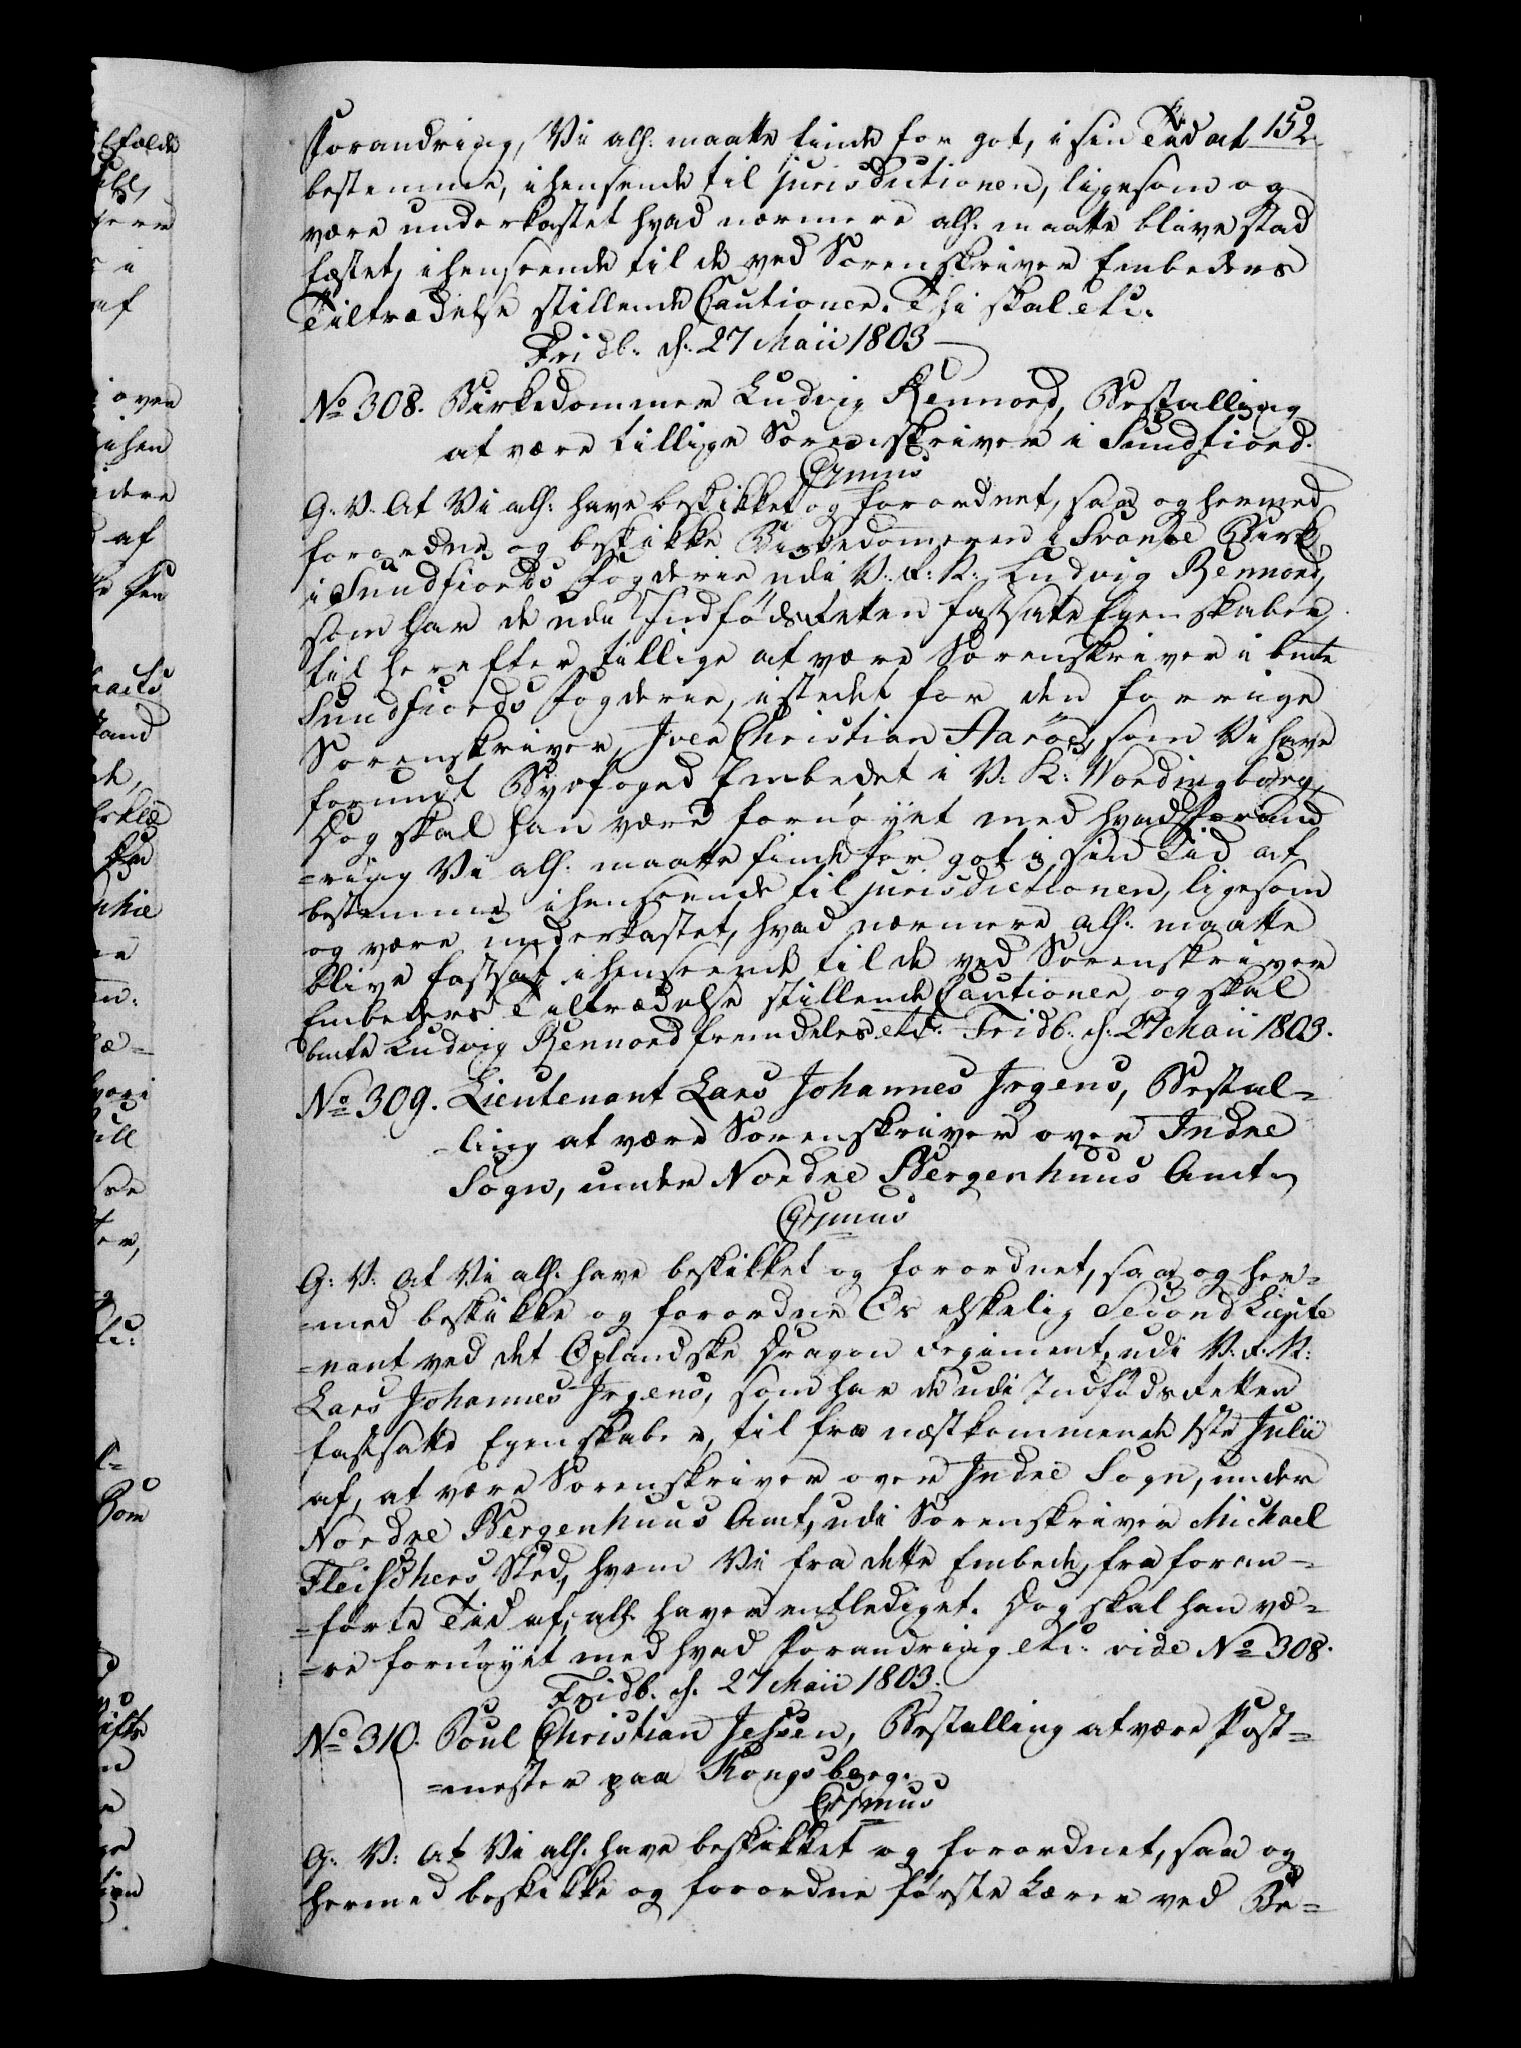 152
Forandring, Vi allh. maatte finde for got, i sin Tid at
bestemme, i henseende til jurisdictionen, ligesom og
være underkastet hvad nærmere allh. maatte blive stad
fæstet, i henseende til de ved Sorenskriver Embeders
Tiltrædelse stillende Cautioner. Thi skal etc.
Fridb. d. 27 Maii 1803
No 308. Birkedommer Ludvig Rennord, Bestalling
at være tillige Sorenskriver i Sundfiord.
G. V. At Vi allh. have beskikket og forordnet, saa og hermed
forordne og beskikke Birkedomeren i Svanøe Birk
i Sundfiords Fogderie udi V. R. N. Ludvig Rennord,
som har de udi Indfødsretten fastsatte Egenskaber,
til herefter tillige at være Sorenskriver i bmte
Sundfiords Fogderie, istedet for den forrige
Sorenskriver, Iver Christian Aaröe, som Vi have
forundt Byefoged Embedet i V. K. Wordingborg,
Dog skal han være fornøyet med hvad Forand
=ring Vi allh. maatte finde for got i sin Tid at
bestemme i henseende til jurisdictionen, ligesom
og være underkastet, hvad nærmere allh. maatte
blive fastsat i henseende til de ved Sorenskriver
Embeders Tiltrædelse stillende Cautioner, og skal
bmte Ludvig Rennord fremdeles etc. Fridb. d. 27 Maii 1803.
No 309. Lieutenant Lars Johannes Irgens, Bestal=
=ling at være Sorenskriver over Indre
Sogn, under Nordre Bergenhuus Amt
G. V. At Vi allh. have beskikket og forordnet, saa og her=
=med beskikke og forordne Os elskelig Second Lieute
=nant ved det Oplandske Dragon Regiment, udi V. R. N.
Lars Johannes Irgens, som har de udi Indfødsretten
fastsatte Egenskaber, til fra næstkommende 1ste Julii
af, at være Sorenskriver over Indre Sogn, under
Nordre Bergenhuus Amt, udi Sorenskriver Michael
Fleischers Sted, hvem Vi fra dette Embede, fra foran=
=førte Tid af, allh. haver entlediget. Dog skal han væ=
=re fornøyet med hvad Forandring etc. vide No 308.
Fridb. d. 27 Maii 1803.
No 310. Poul Christian Jessen, Bestalling at være Post=
=mester paa Kongsberg.
G. V. At Vi allh. have beskikket og forordnet, saa og
hermed beskikke og forordne første Lærer ved Be=